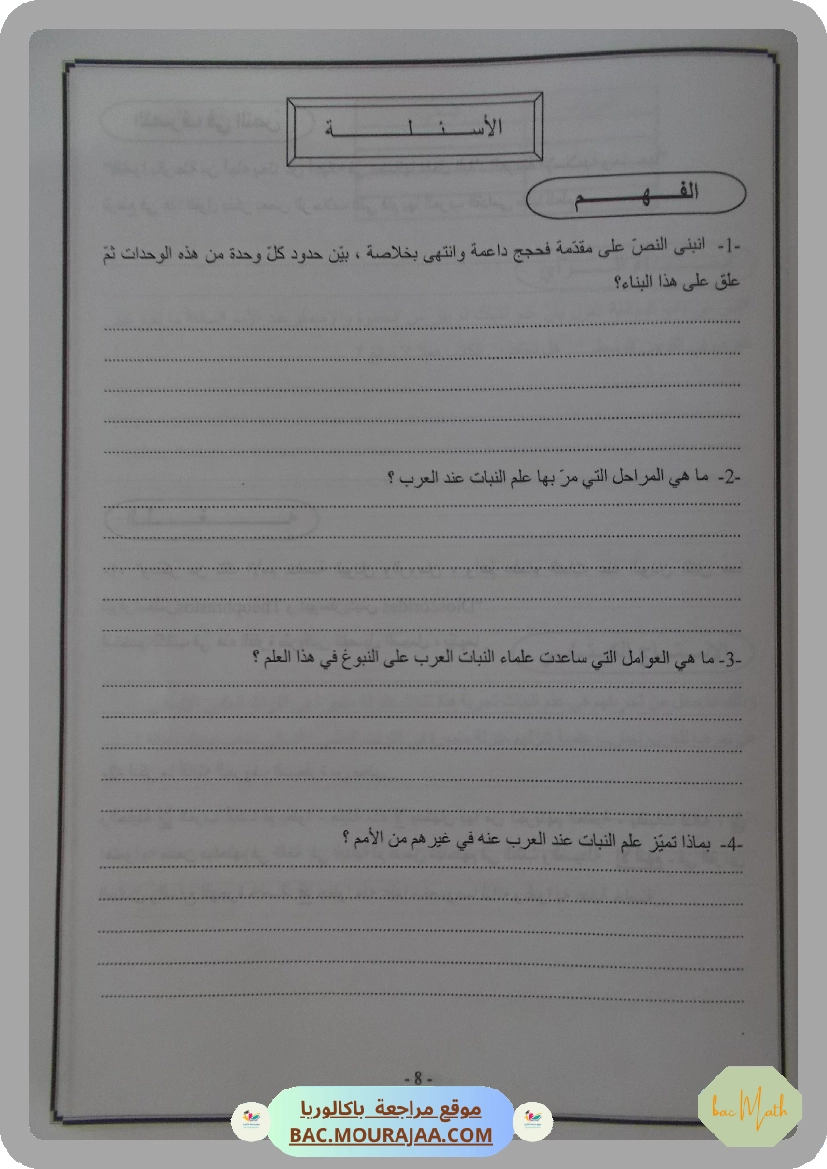 الأسئلة
الفهم
-1- انبنى النصّ على مقدّمة فحجج داعمة وانتهى بخلاصة ، بيّن حدود كلّ وحدة من هذه الوحدات ثمّ
علق على هذا البناء؟
-2- ما هي المراحل التي مرّ بها علم النبات عند العرب ؟
-3- ما هي العوامل التي ساعدت علماء النبات العرب على النبوغ في هذا العلم ؟
-4- بماذا تميّز علم النبات عند العرب عنه في غيرهم من الأمم ؟
- 8 -
موقع مراجعة باكالوريا
BAC.MOURAJAA.COM
bac Math